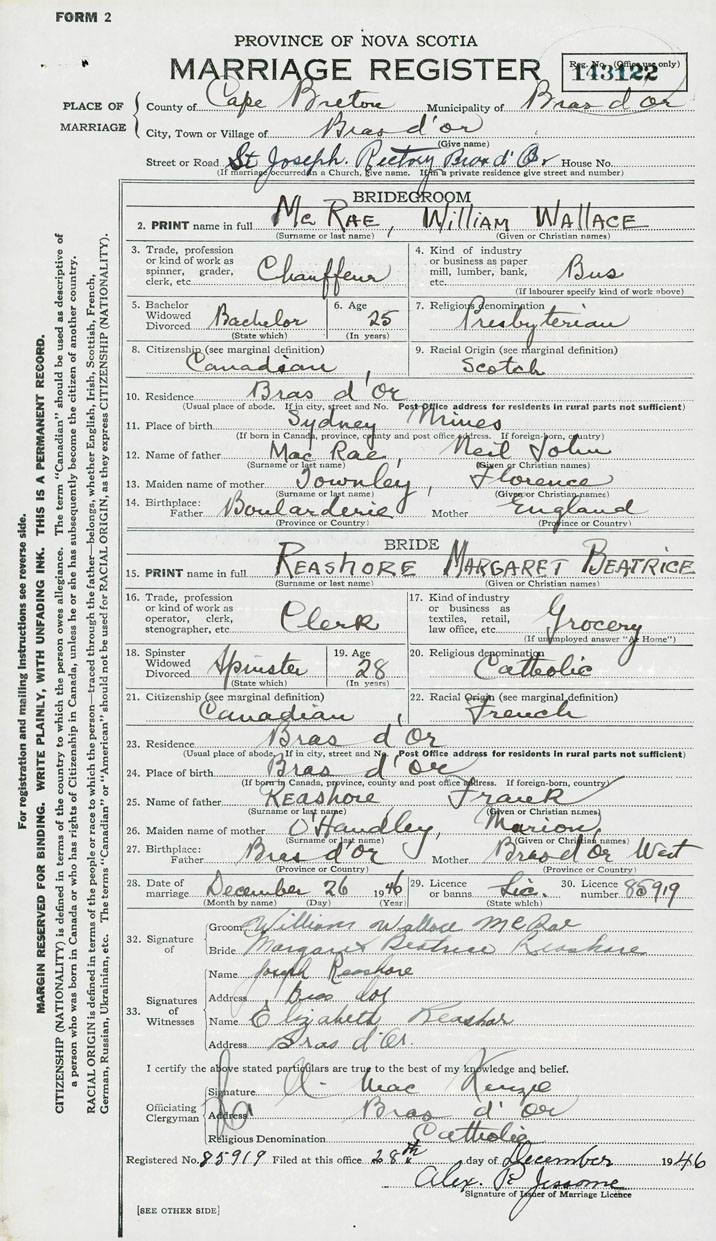 FORM 2
PROVINCE OF NOVA SCOTIA
MARRIAGE REGISTER
Reg. No. (Office use only)
143122
PLACE OF MARRIAGE
County of Cape Breton Municipality of Bras d'or
City, Town or Village of Bras d'or
(Give name)
Street or Road St Joseph. Rectory Bras d'Or House No.
(If marriage occurred in a Church, give name. If in a private residence give street and number)
BRIDEGROOM
2. PRINT name in full Mc RAE, WILLIAM WALLACE
(Surname or last name) (Given or Christian names)
3. Trade, profession or kind of work as spinner, grader, clerk, etc. Chauffeur
4. Kind of industry or business as paper mill, lumber, bank, etc. Bus
(If labourer specify kind of work above)
5. Bachelor Widowed Divorced Bachelor
(State which)
6. Age 25
(In years)
7. Religious Denomination Presbyterian
8. Citizenship (see marginal definition) Canadian
9. Racial Origin (see marginal definition) Scotch
10. Residence Bras d'Or
(Usual place of abode. If in city, street and No. Post Office address for residents in rural parts not sufficient)
11. Place of birth Sydney Mines
(If born in Canada, province, county and post office address. If foreign-born, country)
12. Name of father Mac Rae, Neil John
(Surname or last name) (Given or Christian names)
13. Maiden name of mother Townley, Florence
(Surname or last name) (Given or Christian names)
14. Birthplace: Father Boularderie Mother England
(Province or Country) (Province or Country)
BRIDE
15. PRINT name in full REASHORE MARGARET BEATRICE
(Surname or last name) (Given or Christian names)
16. Trade, profession or kind of work as operator, clerk, stenographer, etc. Clerk
17. Kind of industry or business as textiles, retail, law office, etc. Grocery
(If unemployed answer "At Home")
18. Spinster Widowed Divorced Spinster
(State which)
19. Age 28
(In years)
20. Religious denomination Catholic
21. Citizenship (see marginal definition) Canadian
22. Racial Origin (see marginal definition) French
23. Residence Bras d'Or
(Usual place of abode. If in city, street and No. Post Office address for residents in rural parts not sufficient)
24. Place of birth Bras d'or
(If born in Canada, province, county and post office address. If foreign-born, country)
25. Name of father Reashore Frank
(Surname or last name) (Given or Christian names)
26. Maiden name of mother O'Handley, Marion
(Surname or last name) (Given or Christian names)
27. Birthplace: Father Bras d'or Mother Bras d'Or West
(Province or Country) (Province or Country)
28. Date of marriage December 26 1946
(Month by name) (Day) (Year)
29. Licence or banns Lic.
(State which)
30. Licence number 85919
32. Signature of
Groom William Wallace McRae
Bride Margaret Beatrice Reashore
33. Signatures of Witnesses
Name Joseph Reashore
Address Bras dor
Name Elizabeth Reashor
Address Bras d'Or.
I certify the above stated particulars are true to the best of my knowledge and belief.
Officiating Clergyman
Signature A. Mac Kenzie
Address Bras d'Or
Religious Denomination Catholic
Registered No. 85919 Filed at this office 28th day of December 1946
Alex. R. Jessome
Signature of Issuer of Marriage Licence
[SEE OTHER SIDE]
For registration and mailing instructions see reverse side.
MARGIN RESERVED FOR BINDING. WRITE PLAINLY, WITH UNFADING INK. THIS IS A PERMANENT RECORD.
CITIZENSHIP (NATIONALITY) is defined in terms of the country to which the person owes allegiance. The term "Canadian" should be used as descriptive of
a person who was born in Canada or who has rights of Citizenship in Canada, unless he or she has subsequently become the citizen of another country.
RACIAL ORIGIN is defined in terms of the people or race to which the person—traced through the father—belongs, whether English, Irish, Scottish, French,
German, Russian, Ukrainian, etc. The terms "Canadian" or "American" should not be used for RACIAL ORIGIN, as they express CITIZENSHIP (NATIONALITY).